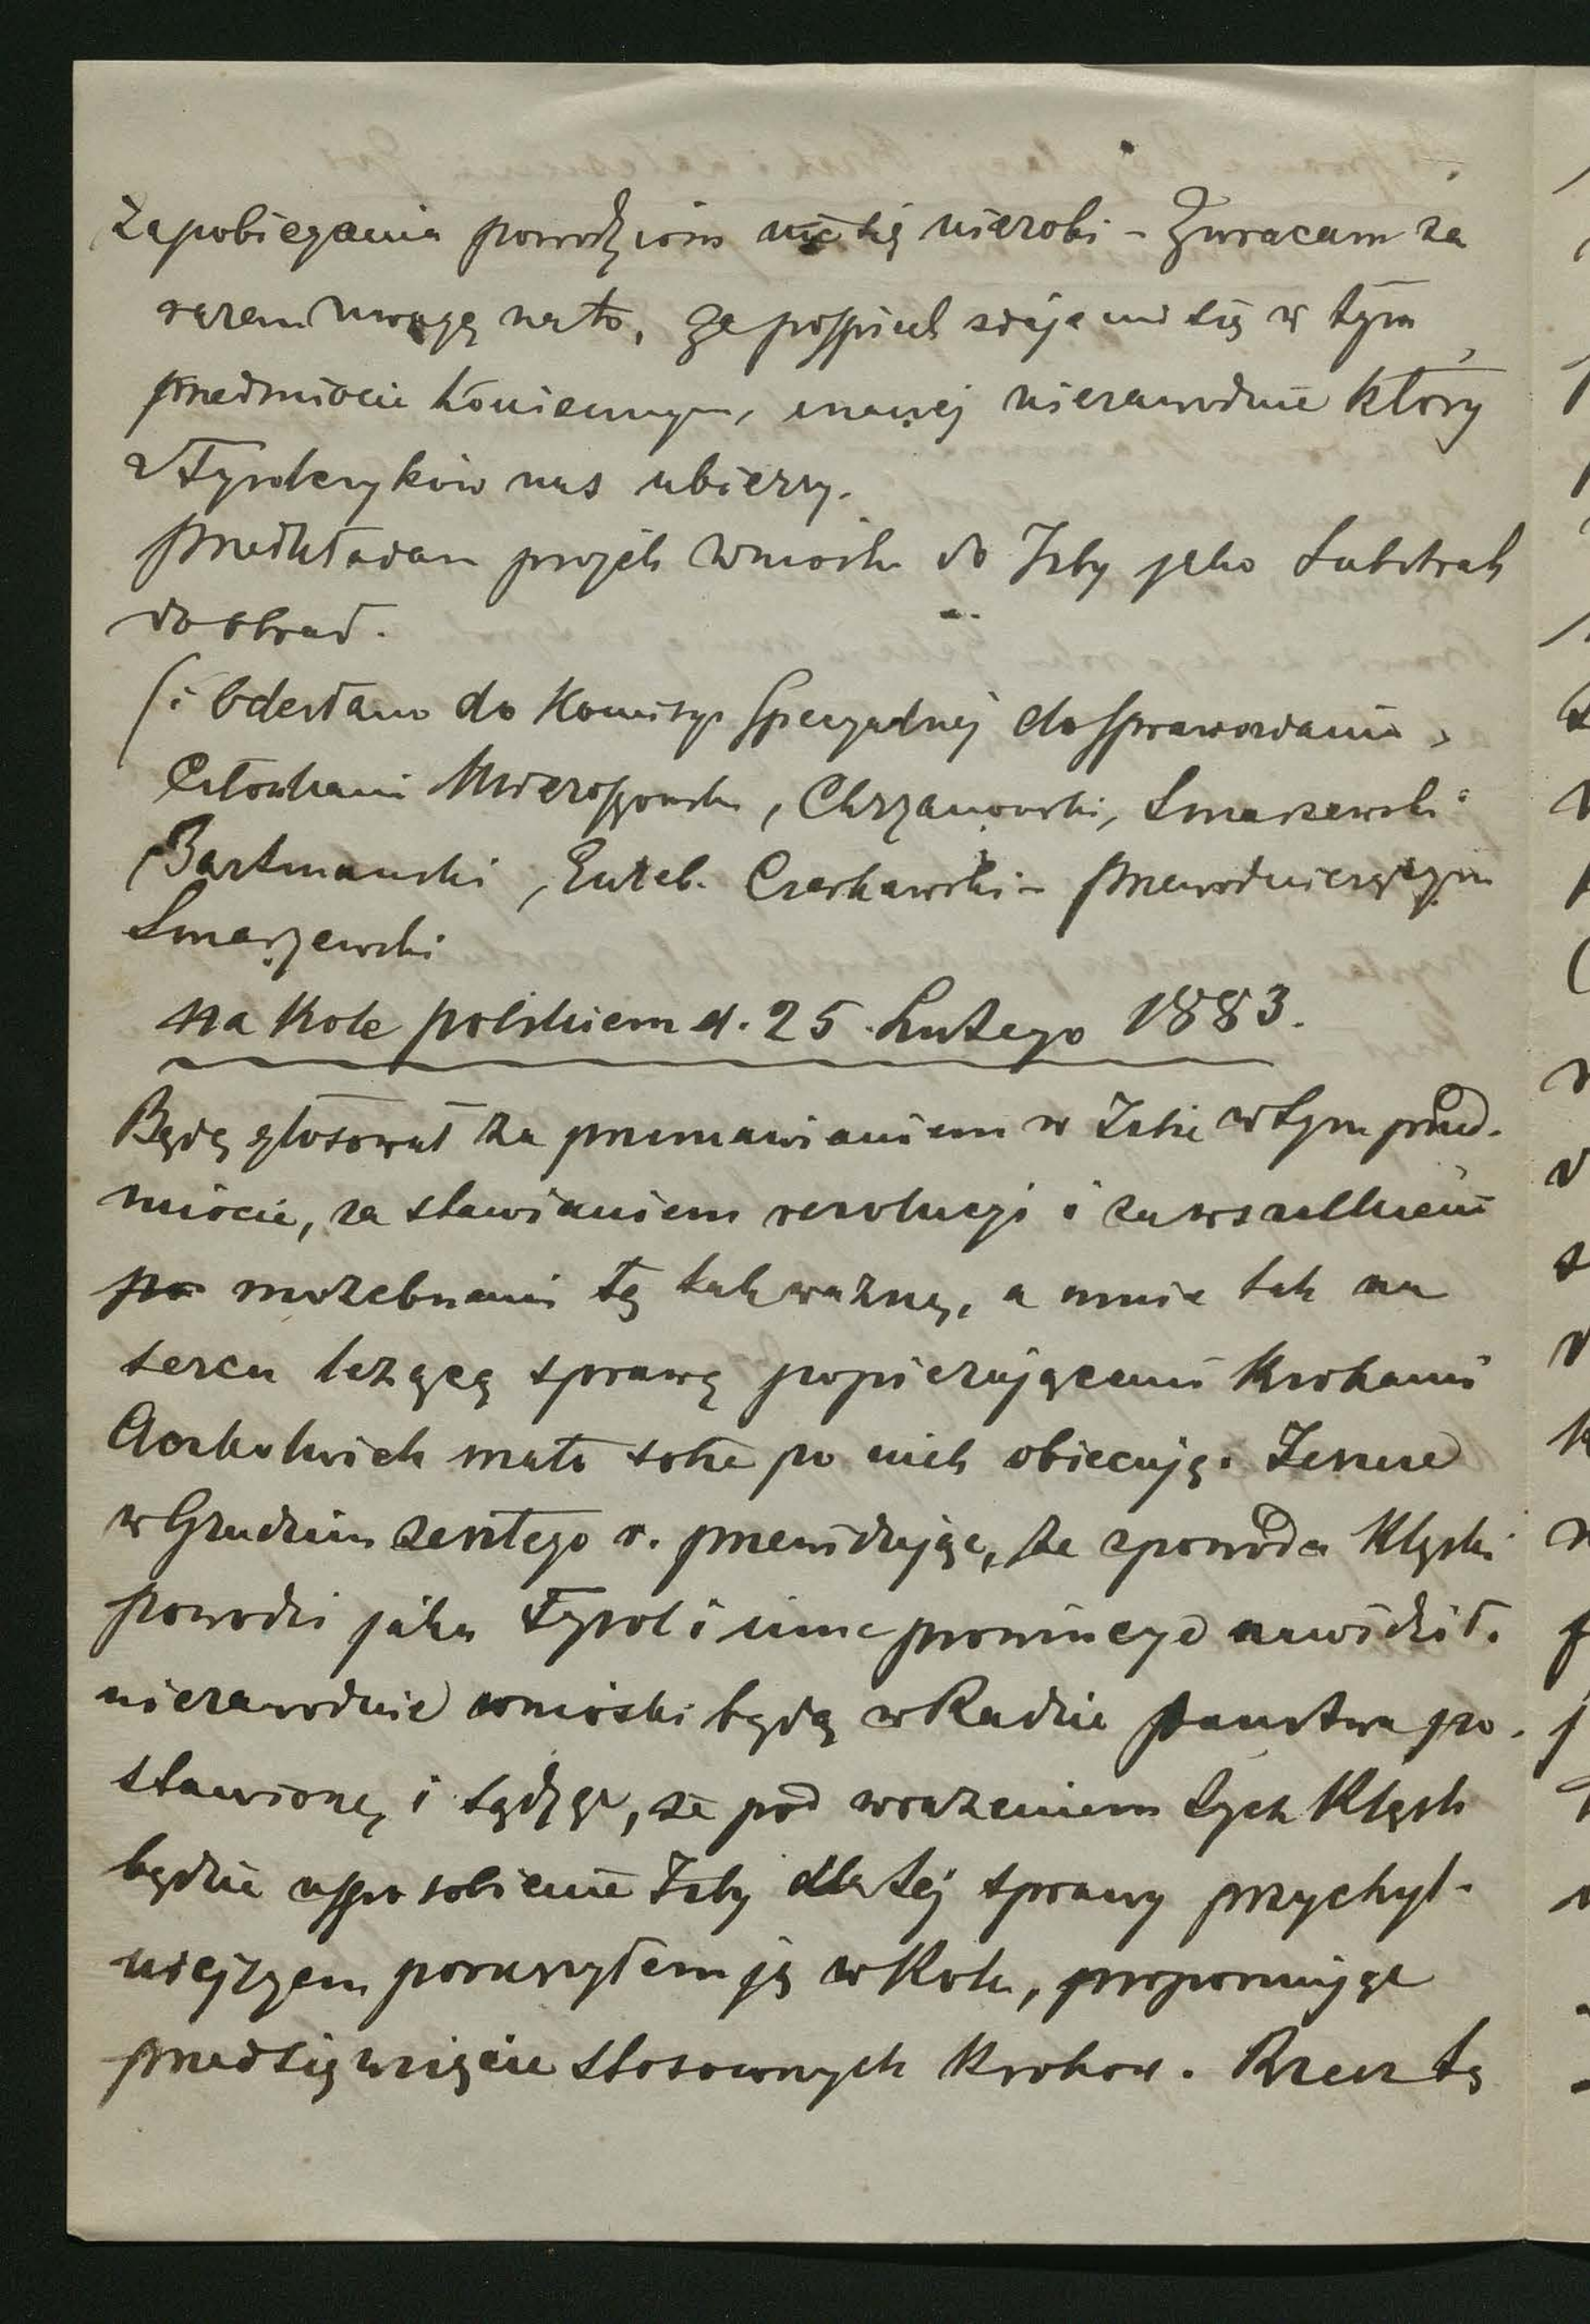 Zapobiegania powodziom nic się nierobi – Zwracam za
razem uwagę na to, że pośpiech zdaje mi się w tym
przedmiocie koniecznym, inaczej niezawodnie który
z Tyrolczyków nas ubierzy.
Przedkładam projekt wniosku do Izby jako Substrat
do obrad.
(i odesłano do Komisyi Specyalnej do sprawozdania,
Członkami Mieroszowski, Chrzanowski, Smarzewski
Bartmański, Euzeb. Czerkawski – przewodniczącym
Smarzewski
na Kole polskiem d. 25 Lutego 1883.
Będę głosował za przemawianiem w Izbie w tym przed.
miocie, za stawianiem rezolucyi i za wszelkiemi
po możebnemi tę tak ważną, a mnie tak na
sercu leżącą sprawę popierającemi krokami
Aczkolwiek mało sobie po nich obiecuję. Jeszcze
w Grudniu zeszłego r. przewidując, że z powodu klęski
powodzi jaka Tyrol i inne prowincye nawidził.
niezawodnie wnioski będą w Radzie państwa po.
stawione, i sądząc, że pod wrażeniem tych klęsk
będzie usposobienie Izby dla tej sprawy przychyl-
niejszem poruszyłem ją w Kole, proponując
przedsięwzięcie stosownych kroków. Rzecz tę